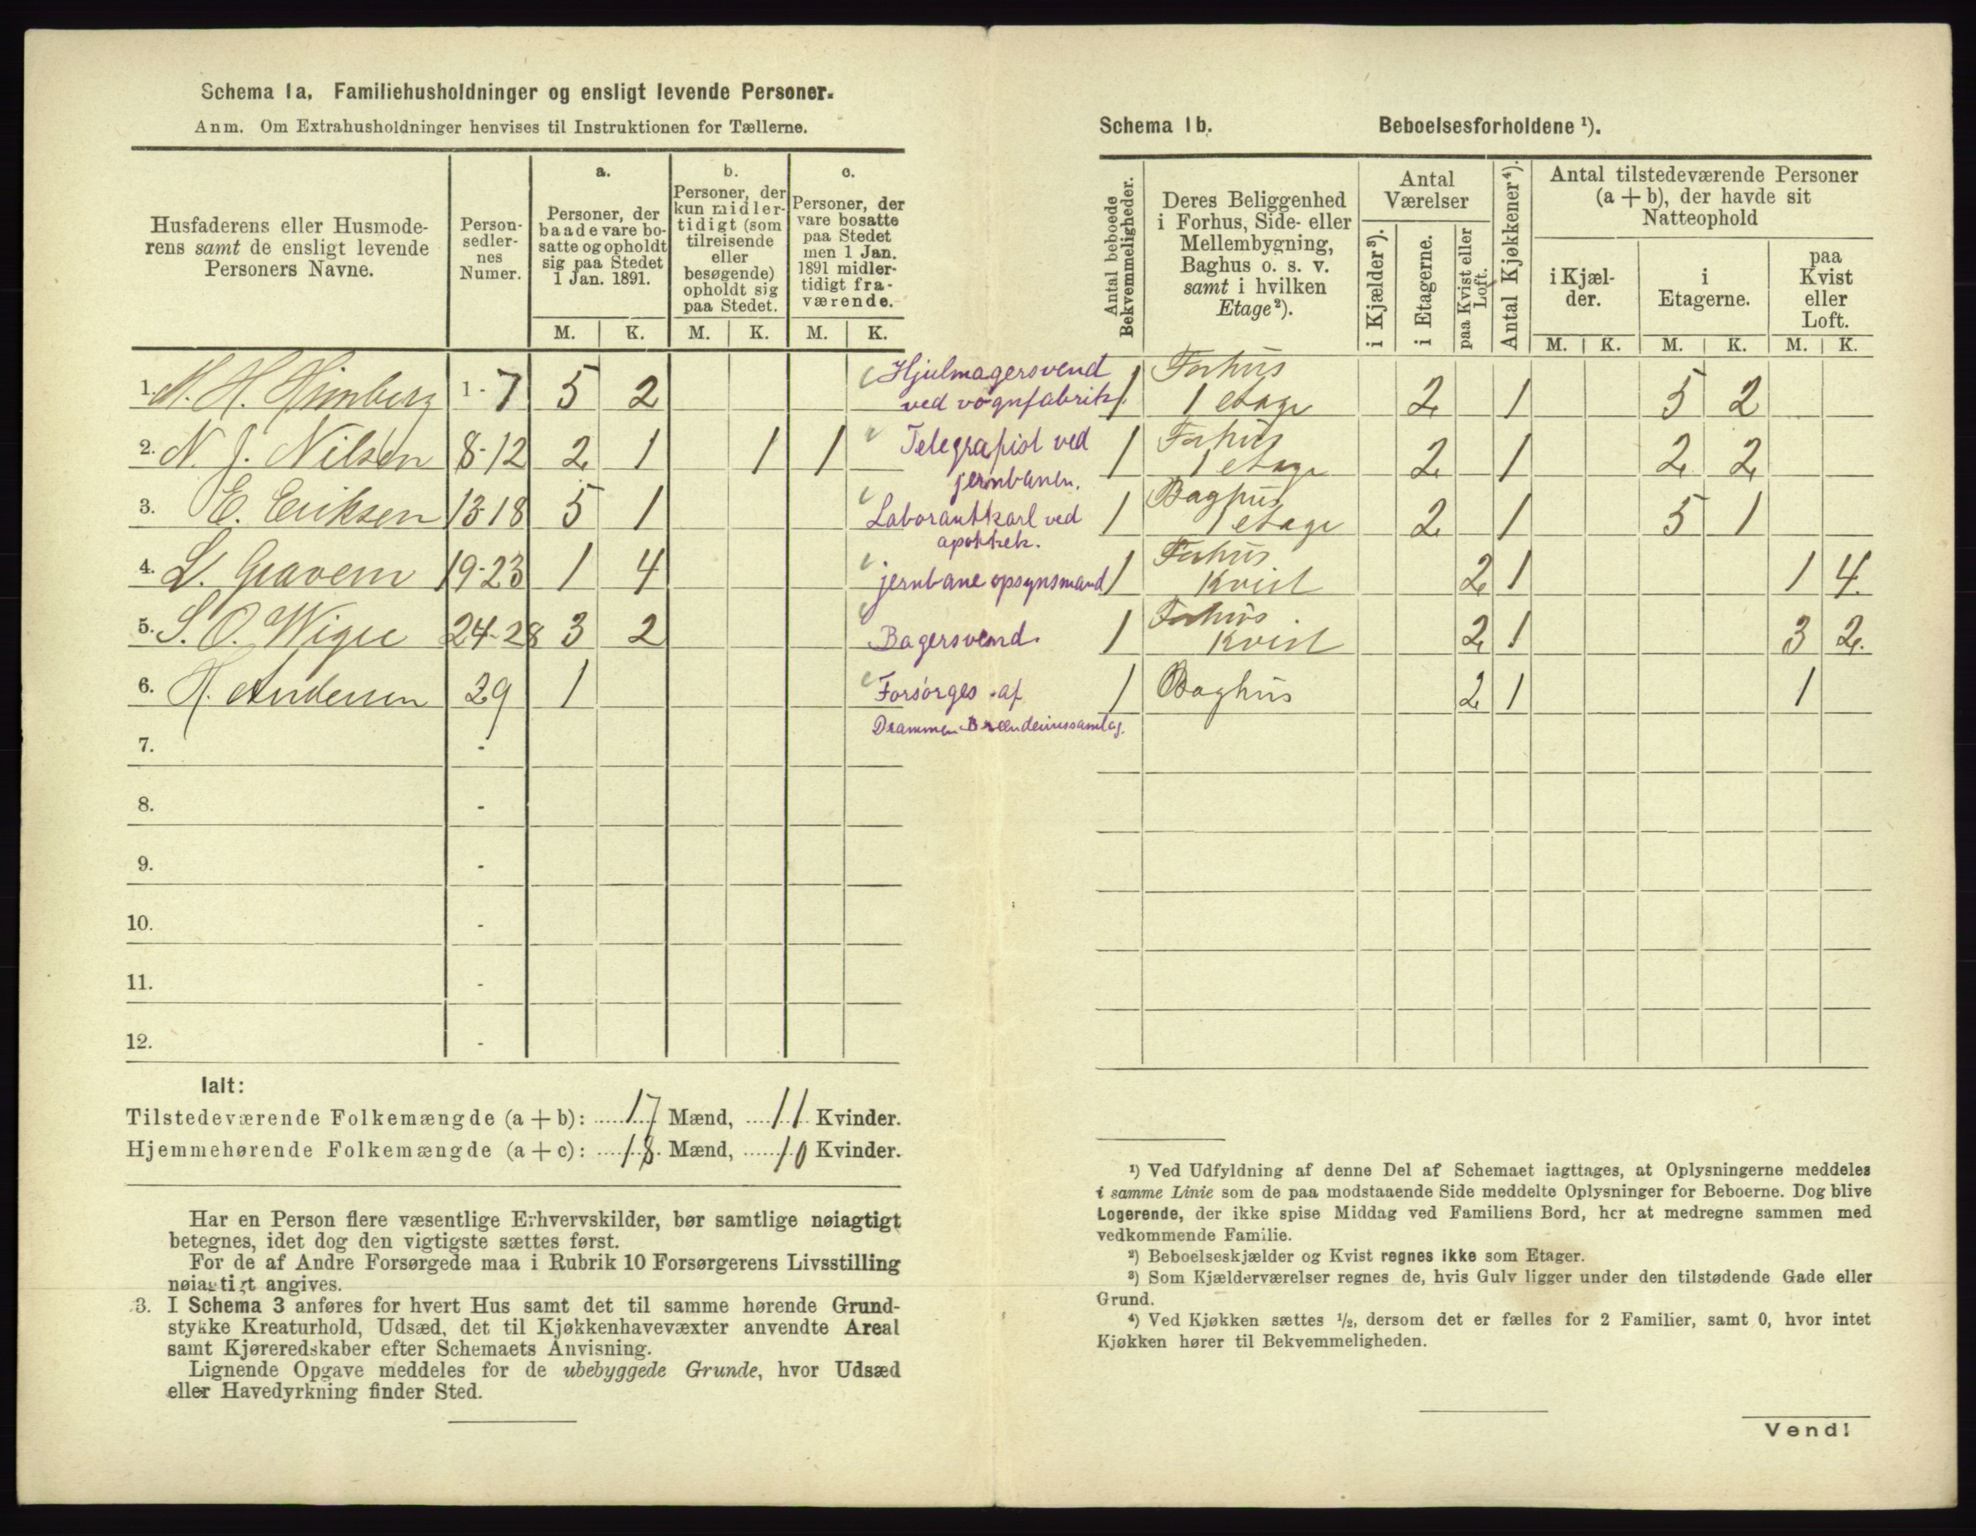 Schema 1a. Familiehusholdninger og ensligt levende Personer.
Anm. Om Extrahusholdninger henvises til Instruktionen for Tællerne.
Husfaderens eller Husmoderens samt de ensligt levende Personers Navne.
Personsedlernes Numer.
a. Personer, der baade vare bosatte og opholdt sig paa Stedet 1 Jan. 1891.
b. Personer, der kun midlertidigt (som tilreisende eller besøgende) opholdt sig paa Stedet.
c. Personer, der vare bosatte paa Stedet men 1 Jan. 1891 midlertidigt fraværende.
M. K. M. K. M. K.
1. H. 1-7 5 2 Hjulmagersvend ved vognfabrik.
2. N. J. Nilsen 8-12 2 1 1 1 Telegrafist ved jernbanen.
3. E. Eriksen 13-18 5 1 Laborantkarl ved apothek.
4. L. Gravem 19-23 1 4 jernbane opsynsmand
5. S. O. Wiger 24-28 3 2 Bagersvend.
6. H. Andersen 29 1 Forsørges af Drammen Brændevinssamlag.
7. -
8. -
9. -
10. -
11. -
12. -
Ialt:
Tilstedeværende Folkemængde (a + b): 17 Mænd, 11 Kvinder.
Hjemmehørende Folkemængde (a + c): 18 Mænd, 10 Kvinder.
Har en Person flere væsentlige Erhvervskilder, bør samtlige nøiagtigt
betegnes, idet dog den vigtigste sættes først.
For de af Andre Forsørgede maa i Rubrik 10 Forsørgerens Livsstilling
nøiagtigt angives.
3. I Schema 3 anføres for hvert Hus samt det til samme hørende Grund-
stykke Kreaturhold, Udsæd, det til Kjøkkenhavevæxter anvendte Areal
samt Kjøreredskaber efter Schemaets Anvisning.
Lignende Opgave meddeles for de ubebyggede Grunde, hvor Udsæd
eller Havedyrkning finder Sted.
Schema 1b. Beboelsesforholdene ¹).
Antal beboede Bekvemmeligheder.
Deres Beliggenhed i Forhus, Side- eller Mellembygning, Baghus o. s. v. samt i hvilken Etage²).
Antal Værelser
i Kjælder³).
i Etagerne.
paa Kvist eller Loft.
Antal Kjøkkener⁴).
Antal tilstedeværende Personer (a + b), der havde sit Natteophold
i Kjælder.
i Etagerne.
paa Kvist eller Loft.
M. K. M. K. M. K.
1 Forhus 1 etage 2 1 5 2
1 Forhus 1 etage 2 1 2 2
1 Baghus 1 etage 2 1 5 1
1 Forhus Kvist 2 1 1 4.
1 Forhus Kvist 2 1 3 2.
1 Baghus 2 1 1
¹) Ved Udfyldning af denne Del af Schemaet iagttages, at Oplysningerne meddeles
i samme Linie som de paa modstaaende Side meddelte Oplysninger for Beboerne. Dog blive
Logerende, der ikke spise Middag ved Familiens Bord, her at medregne sammen med
vedkommende Familie.
²) Beboelseskjælder og Kvist regnes ikke som Etager.
³) Som Kjælderværelser regnes de, hvis Gulv ligger under den tilstødende Gade eller
Grund.
⁴) Ved Kjøkken sættes ½, dersom det er fælles for 2 Familier, samt 0, hvor intet
Kjøkken hører til Bekvemmeligheden.
Vend!